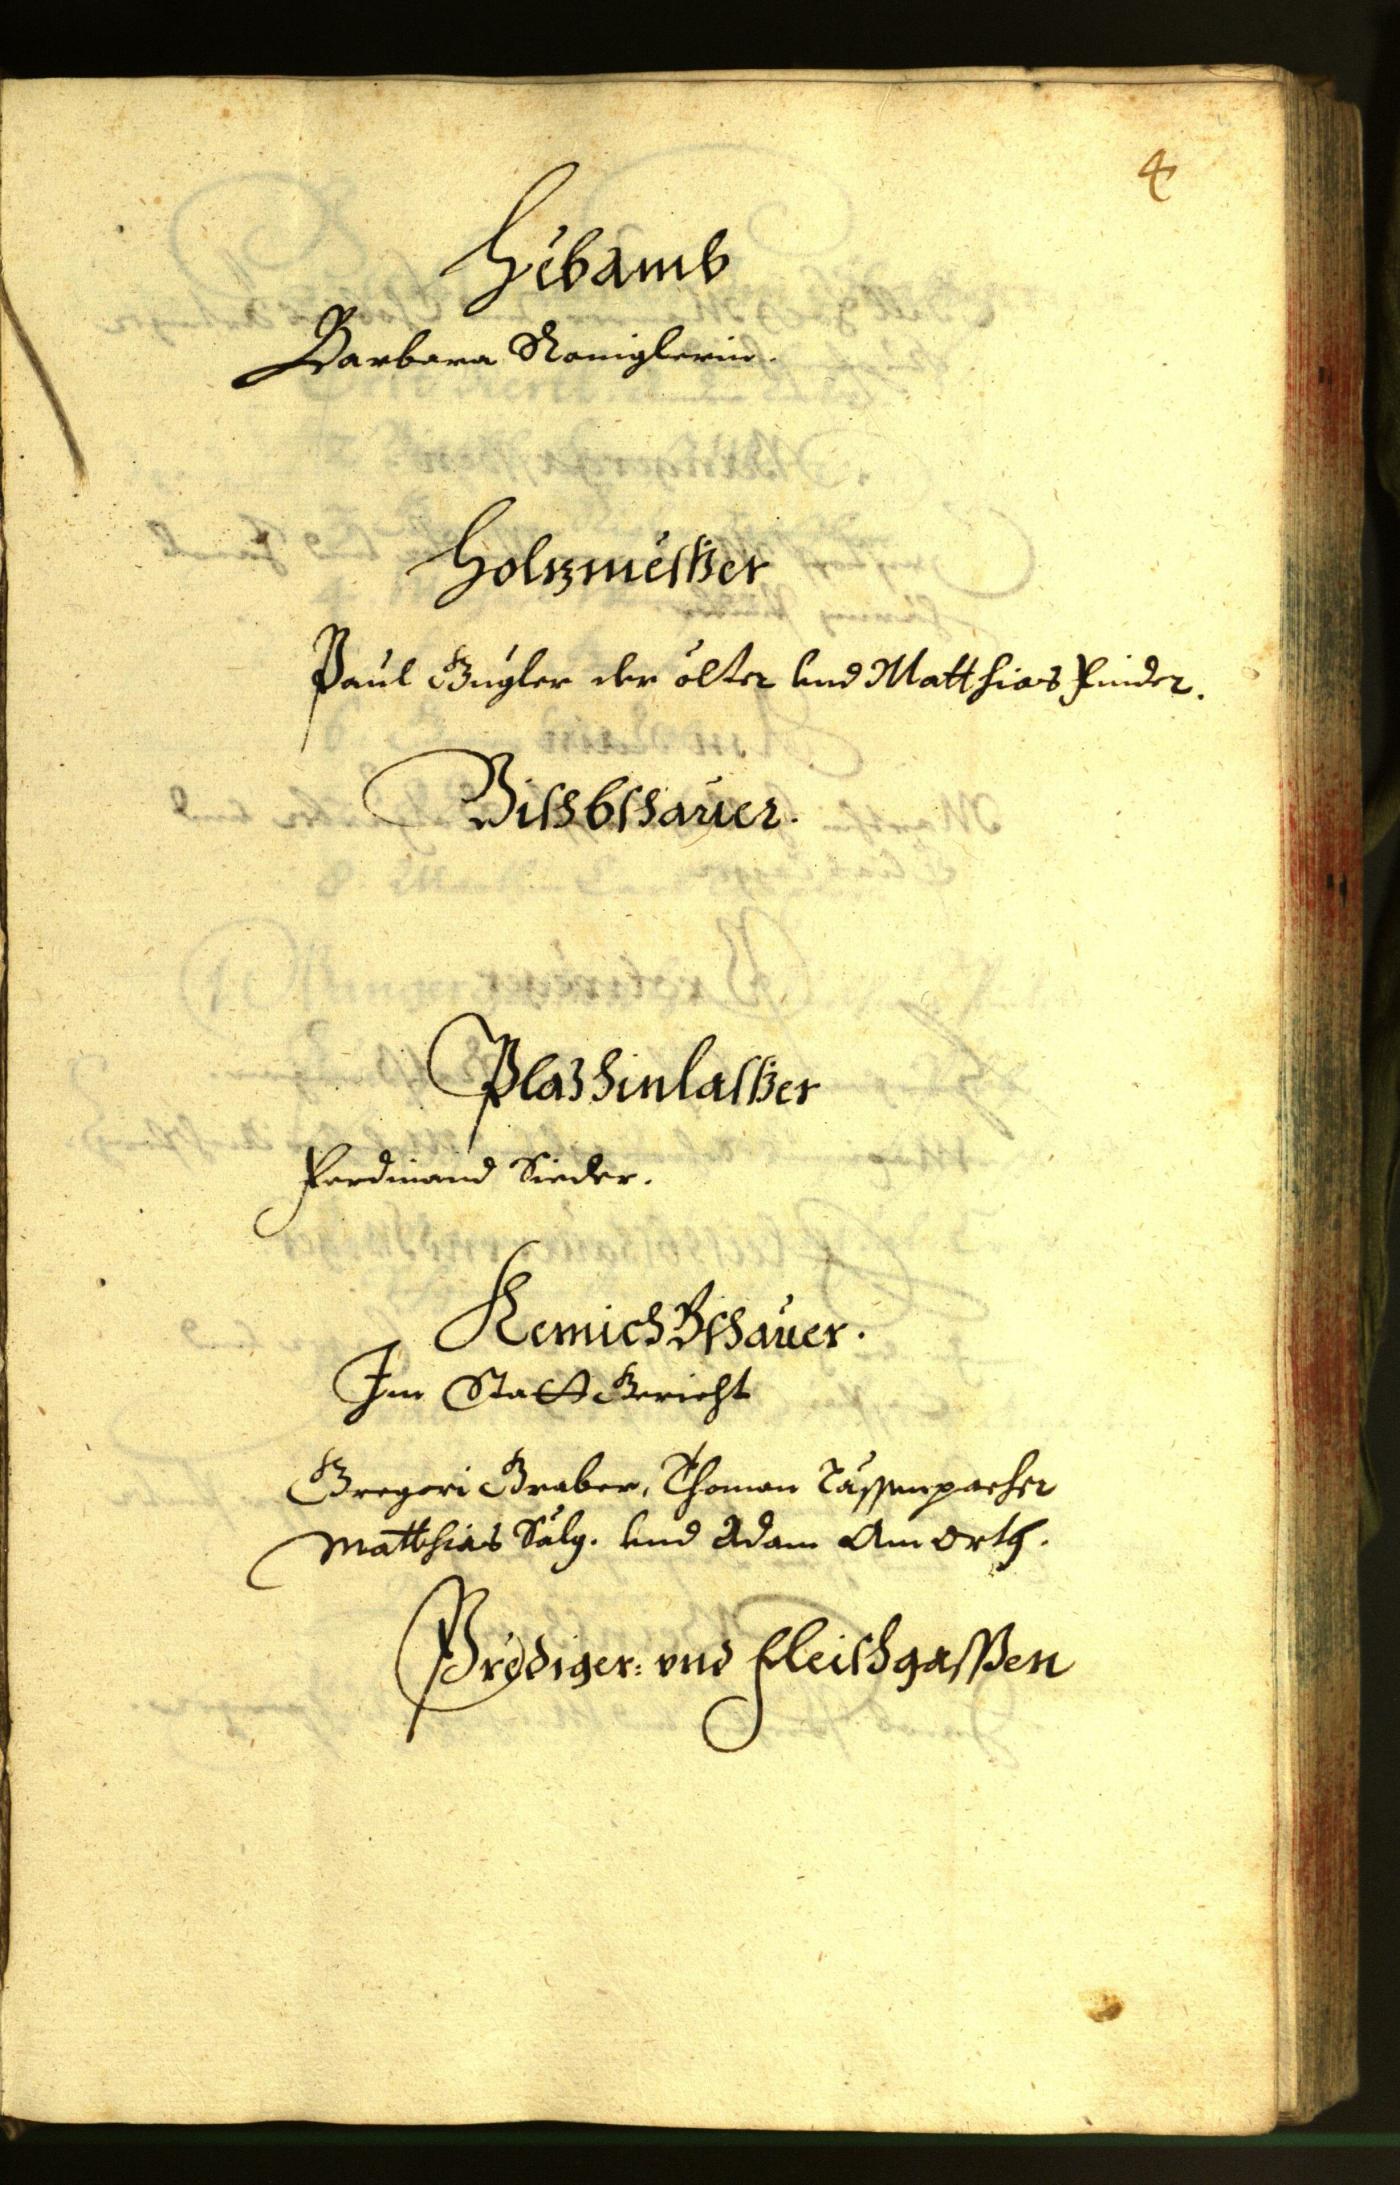 4
Hebamb
Barbara Königlerin.
Holzmesßer
Paul Gugler der ölter vnd Matthias Pinder.
Vischbschauer.
Plazhinlasßer
Ferdinand Sieder.
KemichBschauer.
Im Statt Gericht
Gregori Graber, Thoman
Matthias Sälg. vnd Adam Am Orth.
Prediger: vnd Fleischgaßen